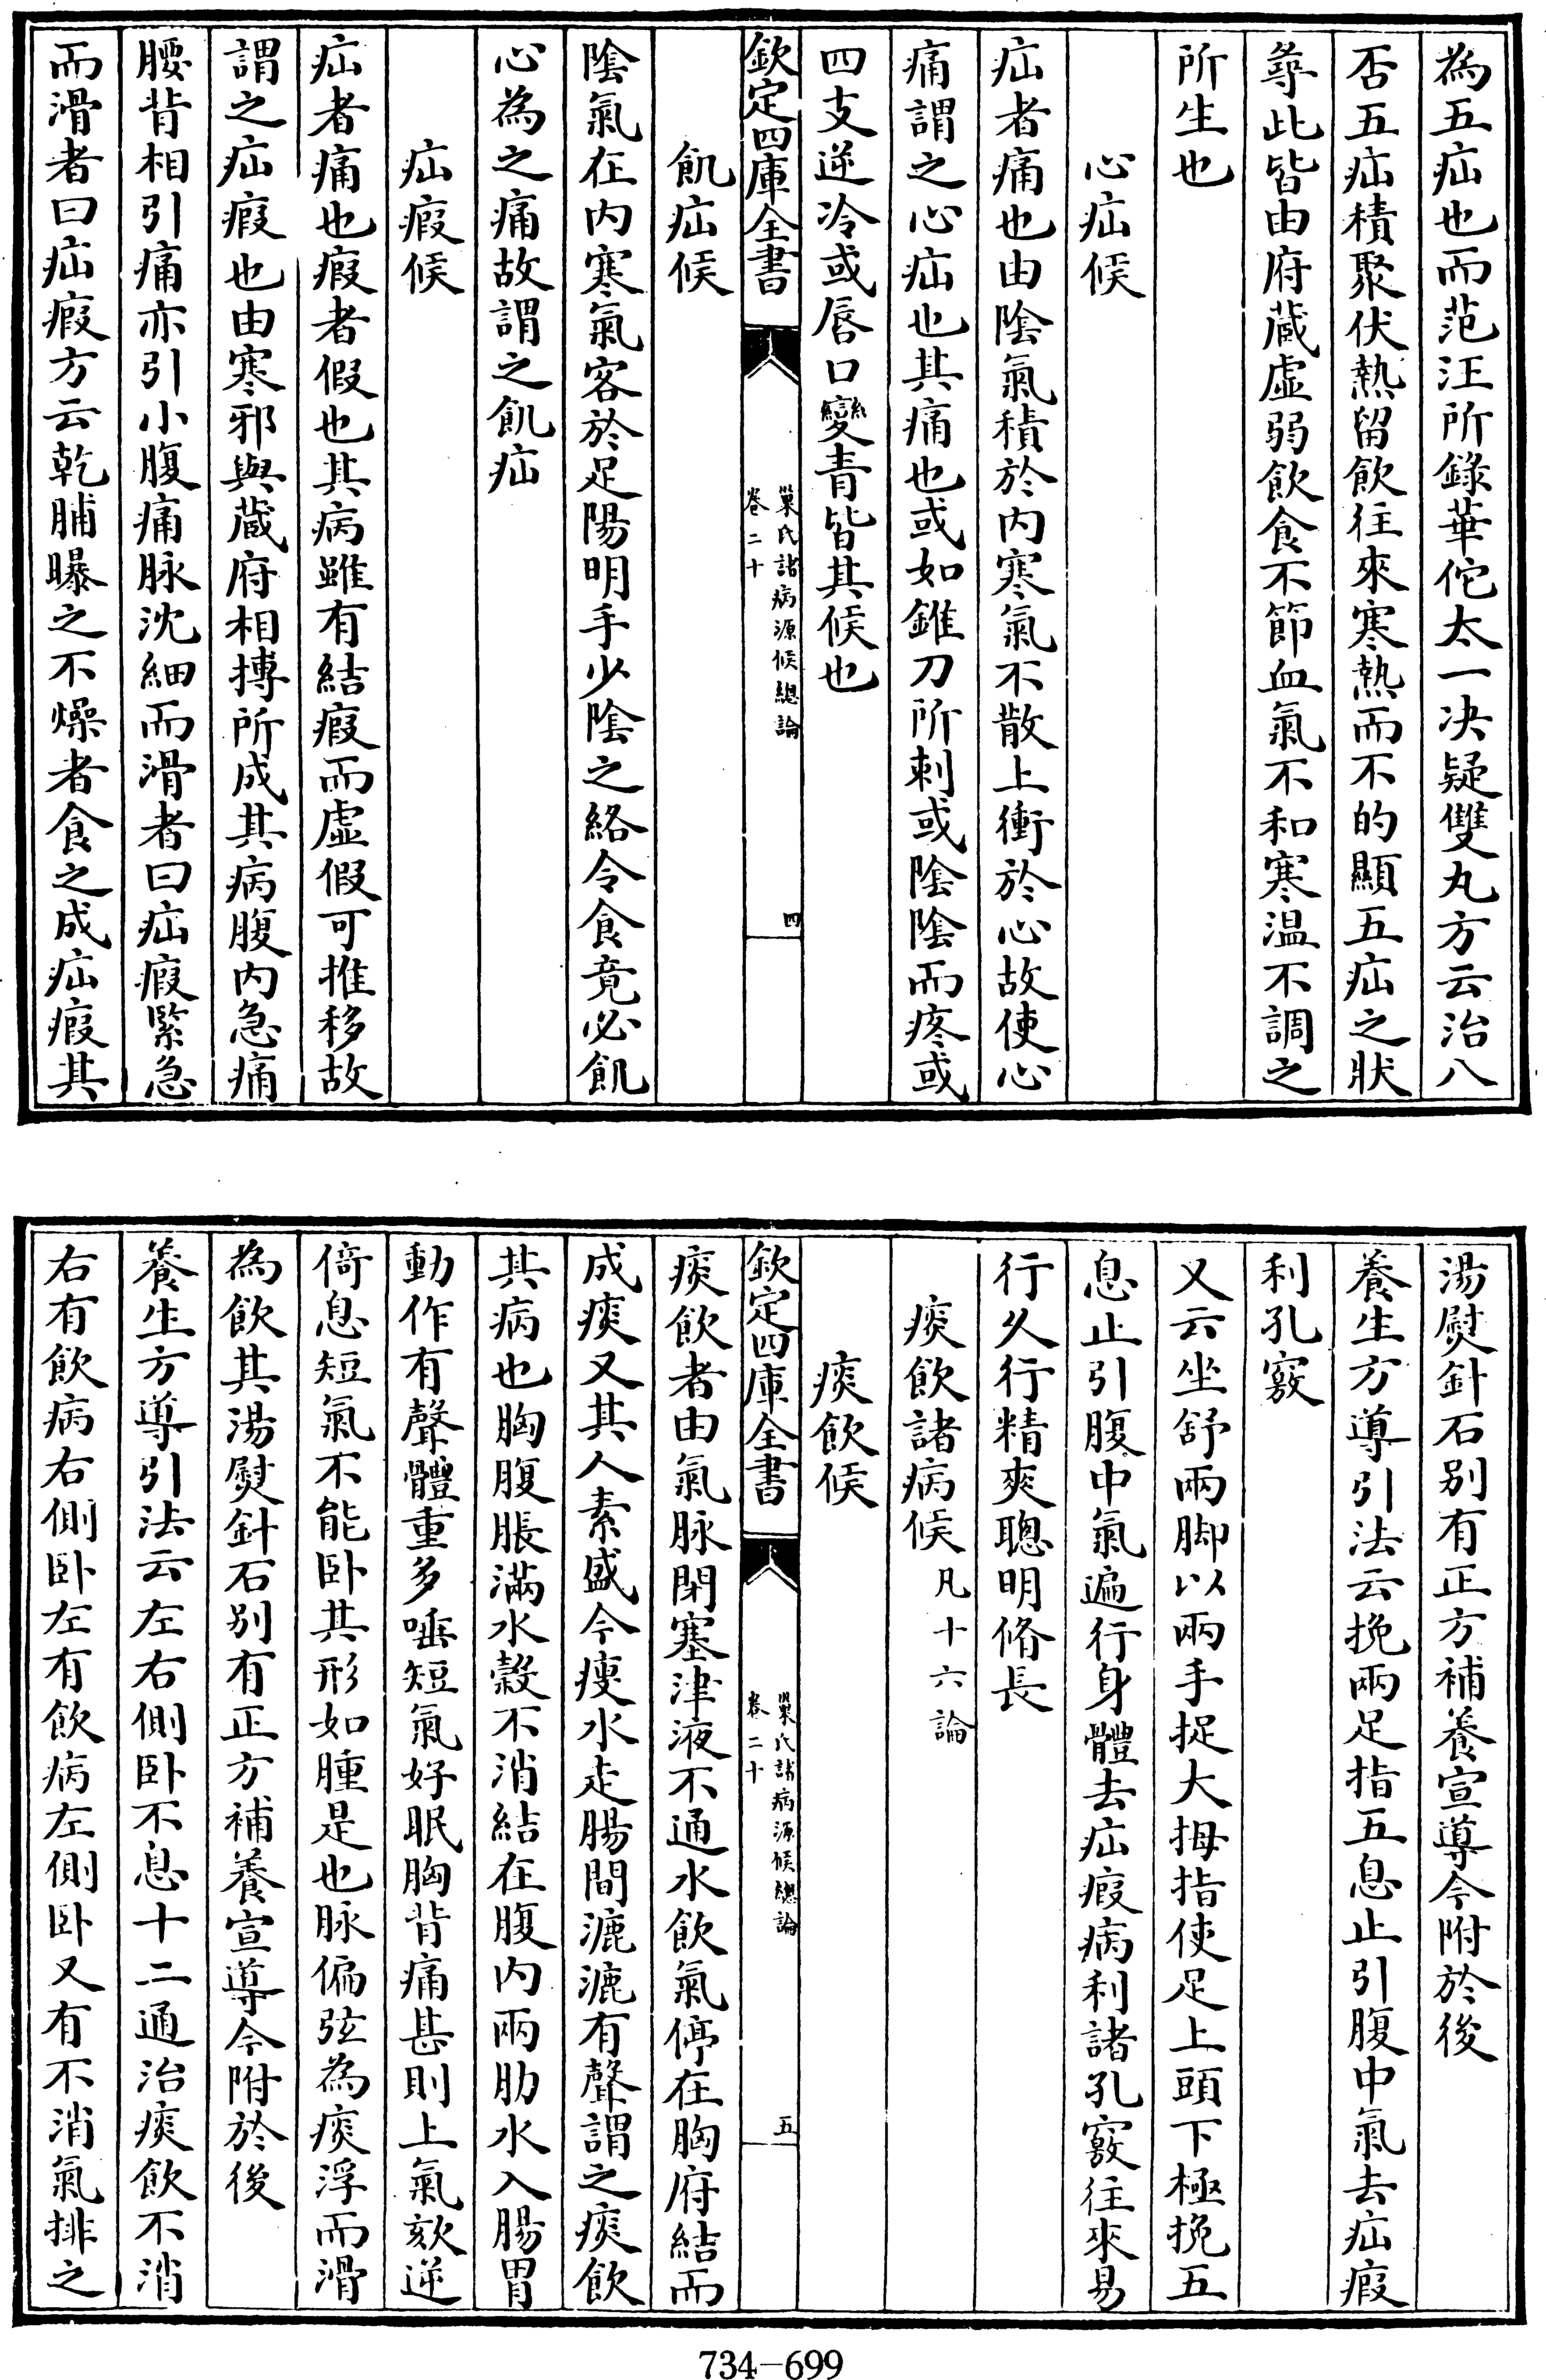 為五疝也而范汪所錄華佗太一决疑雙丸方云治八
否五疝積聚伏熱留飲往來寒熱而不的顯五疝之狀
尋此皆由府藏虛弱飲食不節血氣不和寒温不調之
所生也
心疝候
疝者痛也由陰氣積於内寒氣不散上衝於心故使心
痛謂之心疝也其痛也或如錐刀所刺或陰陰而疼或
四支逆冷或唇口變青皆其候也
欽定四庫全書
巢氏諸病源候總論
卷二十
四
飢疝候
陰氣在内寒氣客於足陽明手少陰之絡令食竟必飢
心為之痛故謂之飢疝
疝瘕候
疝者痛也瘕者假也其病雖有結瘕而虛假可推移故
謂之疝瘕也由寒邪與藏府相搏所成其病腹内急痛
腰背相引痛亦引小腹痛脉沈細而滑者曰疝瘕緊急
而滑者曰疝瘕方云乾脯曝之不燥者食之成疝瘕其
湯熨針石别有正方補養宣導今附於後
養生方導引法云挽兩足指五息止引腹中氣去疝瘕
利孔竅
又云坐舒兩脚以兩手捉大拇指使足上頭下極挽五
息止引腹中氣遍行身體去疝瘕病利諸孔竅往來易
行久行精爽聰明脩長
痰飲諸病候凡十六論
痰飲候
欽定四庫全書
巢氏諸病源候總論
卷二十
五
痰飲者由氣脉閉塞津液不通水飲氣停在胸府結而
成痰又其人素盛今瘦水走腸間漉漉有聲謂之痰飲
其病也胸腹脹滿水穀不消結在腹内兩肋水入腸胃
動作有聲體重多唾短氣好眠胸背痛甚則上氣欬逆
倚息短氣不能卧其形如腫是也脉偏弦為痰浮而滑
為飲其湯熨針石别有正方補養宣導今附於後
養生方導引法云左右側卧不息十二通治痰飲不消
右有飲病右側卧左有飲病左側卧又有不消氣排之
734-699